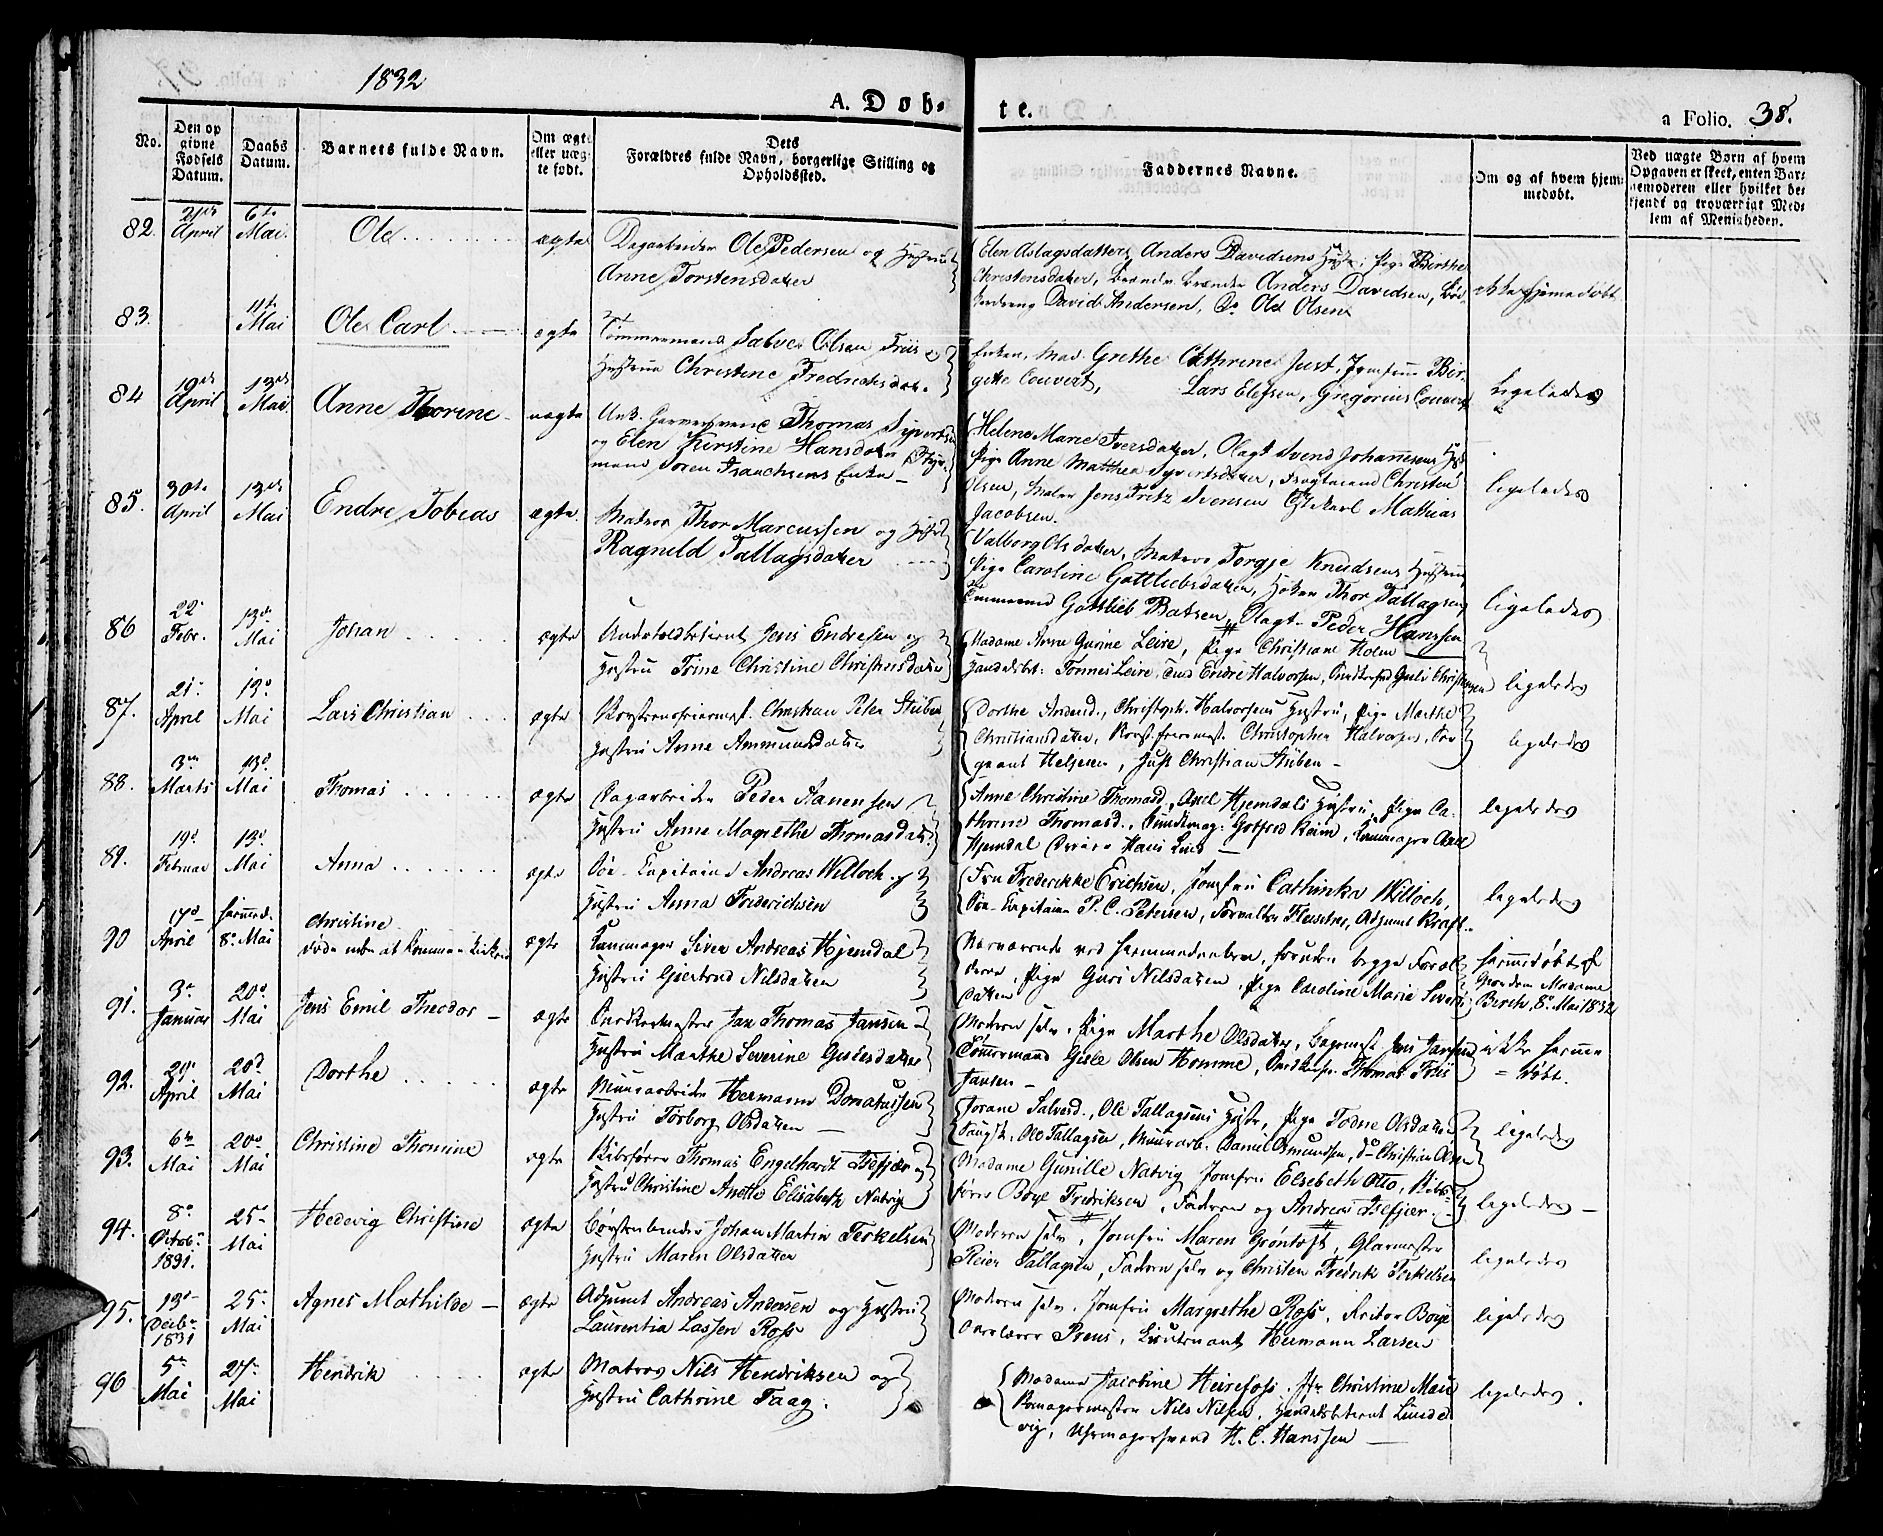 1832
A. Døb-
te.
a Folio. 38.
No.
Den opgivne Fødsels Datum.
Daabs Datum.
Barnets fulde Navn.
Om ægte eller uægte født.
Dets Forældres fulde Navn, borgerlige Stilling og Opholdssted.
Faddernes Navne.
Om og af hvem hjemmedøbt.
Ved uægte Børn af hvem Opgaven er skeet, enten Barnemoderen eller hvilket bekjendt og troværdigt Medlem af Menigheden.
82. 21de April 6te Mai. Ole ægte Dagarbeider Ole Pedersen og Hustrue
Anne Torstensdatter
Elen Aslagsdatter, Anders Davidsens Hustr. Pige Birthe
Christensdatter, Anders Davidsen,
David Andersen, Do Ole Olsen
ikke hjemedøbt
83. 11te Mai Ole Carl ægte Tømmermand Salve Olsen Friis
Hustrue Christine Fredrichsdatt.
Enken, Mad. Grethe Cathrine Just, Jomfrue Bir-
gitte Couvert, Lars Elefsen, Gregorius Couvert
Ligeledes
84 19de April 13de Mai Anne Thorine uægte Unk. Garversvend Thomas Syvertsen
og Elen Kirstine Hansdatter Styr-
mand Søren Enke
Helene Marie Iversdatter, Svend Johannesens
Pige Anne Mathea Syvertsdatter, Christen
Olsen, Maler Jens Fritz Svensen Mathias
Jacobsen.
ligeledes
85. 30te April 13de Mai Endre Tobias ægte. Matros Thor Marcussen og Hustr.
Ragnild Tallagsdatter
Valborg Olsdatter, Matros Torgje Knudsens Hustrue
Pige Caroline Gottliebsdatter, Thor Tallagsen,
Tømmermd Gottlieb Batsen, Peder Hanssen
ligeledes
86 22 Febr. 13de Mai Johan ægte Jens Endresen og
Hustru Trine Christine Christensdatter
Madame Anne Gurine Leire, Pige Christiane Holm
Handelsbet: Tønnes Leire, Endre Halvorsen, Christensen
ligeledes
87. 21 April 13de Mai Lars Christian ægte Christian Peter Stüben
Hustru Anne Ammundsdatter
Dorthe Andersd., Christoph. Halvorsens Hustru, Pige Marthe
Christiansdatter, Christopher Halvorsen, Ser-
geant Helgesen, Just Christian Stüben
ligeledes
88. 3die Marts 13de Mai Thomas ægte Dagarbeider Peder Aanensen
Hustru Anne Magrethe Thomasdatt.
Anne Christine Thomasd., Axel Hjemdals Hustru, Pige Ca-
thrine Thomasd., Gotfred Reim, Axel
Hjemdal Hans Lund
ligeledes
89. 19de Februar 13de Mai Anna ægte Søe-Capitaine Andreas Willoch og
Hustru Anna Friderichsen
Fru Frederikke Erichsen, Jomfru Cathinka Willoch,
Søe-Capitaine P. C. Petersen, Forvalter Fleischer, Adjunct Kraft
ligeledes
90 17de April hjemmed. 8de Mai Christine
døde uden at komme i Kirken ægte Kammager Siver Andreas Hjemdal
Hustru Gjertrud Nilsdatter
Nærværende ved Hjemmedaaben, foruden begge Foræl-
drene, Pige Guri Nilsdatter, Pige Caroline Marie Siverts-
datter
hjemmedøbt af
Madame
Birch, 8de Mai 1832
91. 3de Januar 20de Mai Jens Emil Theodor ægte Snedkermester Jan Thomas Jansen
Hustru Marthe Severine Gislesdatter
Moderen selv, Pige Marthe Olsdatter, Bagermest. Jens Jansen
Tømmermand Gisle Olsen Homme, Thomas Friis
Jansen
ikke hjemme-
døbt.
92. 29de April 20de Mai Dorthe ægte Muurarbeider Hermann Donatussen
Hustru Torborg Olsdatter
Torane Salvesd., Ole Tallagsens Hustr., Pige Todne Olsdatter
Ole Tallagsen, Muurarb. Daniel Osmundsen, do Christian Olsen
ligeledes
93. 6te Mai 20de Mai Christine Thomine ægte Skibsfører Thomas Engelhardt Isefjær og
Hustru Christine Anette Elisabeth Natvig
Madame Gunille Natvig Jomfru Elsebeth Otto, Skibs-
fører Boye Fredriksen, Faderen og Andreas Isefjær
ligeledes
94. 8de Octob. 1831. 25 Mai Hedevig Christine ægte Børstenbinder Johan Martin Terkelsen
Hustru Maren Olsdatter
Moderen selv, Jomfru Maren Grøntoft, Glarmester
Reier Tallagsen, Faderen selv og Christen Fredrik Terkelsen
ligeledes
95. 13de Decbr. 1831 25 Mai Agnes Mathilde ægte Adjunct Andreas Andersen og Hustru
Laurentia Lassen Ross
Moderen selv, Jomfru Margrethe Ross, Rector Boye
Overlærer Preus, Lieutenant Hermann Larsen
ligeledes
96 5te Mai 27de Mai Hendrik ægte Matros Nils Hendriksen og
Hustru Cathrine Faag.
Madame Jacobine Heirefoss, Jfr Christine Mau
Nils Nilsen, Handelsbetient Lunde-
vig, Uhrmagersvend H. C. Hanssen
ligeledes.